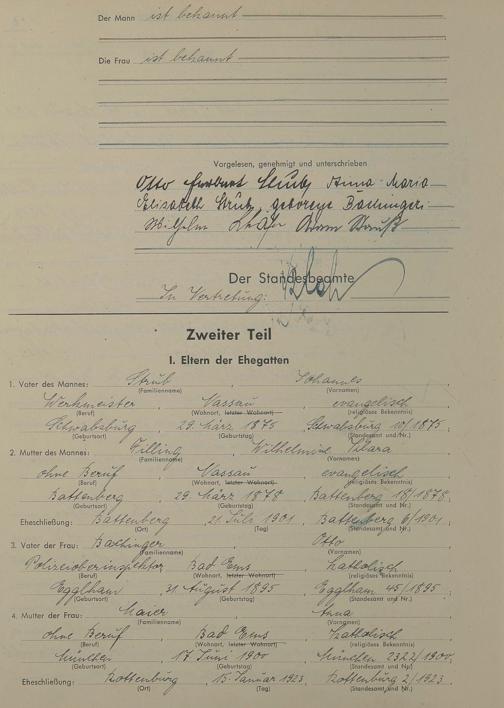 Der Mann ist bekannt
Die Frau ist bekannt
Vorgelesen, genehmigt und unterschrieben
Otto Strub, Anna-Maria
Elisabeth Strub, geborene Bachinger
Wilhelm Adam Strauß
Der Standesbeamte
In Vertretung:
Zweiter Teil
I. Eltern der Ehegatten
1. Vater des Mannes: Strub, Johannes
(Familienname) (Vornamen)
Werkmeister, Nassau, evangelisch
(Beruf) (Wohnort, letzter Wohnort) (religiöses Bekenntnis)
Schwabsburg, 29. März 1875, Schwabsburg 10/1875.
(Geburtsort) (Geburtstag) (Standesamt und Nr.)
2. Mutter des Mannes: Wilhelmine
(Familienname) (Vornamen)
ohne Beruf, Nassau, evangelisch
(Beruf) (Wohnort, letzter Wohnort) (religiöses Bekenntnis)
Battenberg, 29. März 1878, Battenberg 18/1878.
(Geburtsort) (Geburtstag) (Standesamt und Nr.)
Eheschließung: Battenberg, 21. Juli 1901, Battenberg 6/1901.
(Ort) (Tag) (Standesamt und Nr.)
3. Vater der Frau: Bachinger, Otto
(Familienname) (Vornamen)
Polizeioberinspektor, Bad Ems, katholisch
(Beruf) (Wohnort, letzter Wohnort) (religiöses Bekenntnis)
Egglham, 31. August 1895, Egglham 45/1895.
(Geburtsort) (Geburtstag) (Standesamt und Nr.)
4. Mutter der Frau: Maier, Anna
(Familienname) (Vornamen)
ohne Beruf, Bad Ems, katholisch
(Beruf) (Wohnort, letzter Wohnort) (religiöses Bekenntnis)
München, 17. Juni 1900, München 2322/1900.
(Geburtsort) (Geburtstag) (Standesamt und Nr.)
Eheschließung: Rottenburg, 15. Januar 1923, Rottenburg 2/1923.
(Ort) (Tag) (Standesamt und Nr.)